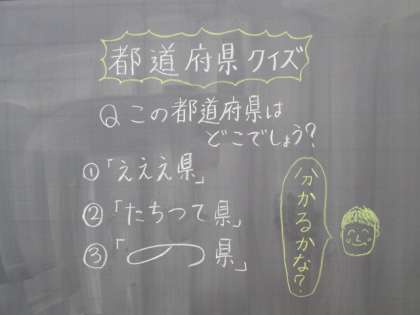 都道府県クイズ
Q この都道府県は
どこでしょう?
①「ええええ県」
②「たちつて県」
③「 県」
分かるかな?